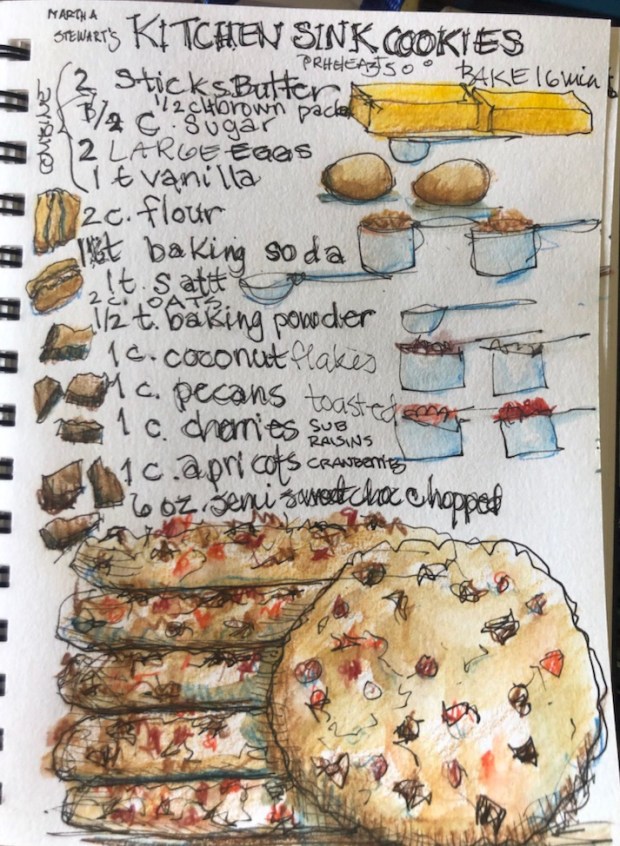 MARTHA STEWART'S KITCHEN SINK COOKIES
PREHEAT 350° BAKE 16 min
COMBINE
2 Sticks Butter
1/2 c brown packed
B/2 c. Sugar
2 LARGE EGGS
1 t vanilla
2 c. flour
t baking soda
1 t. salt
2 c. OATS
1/2 t. baking powder
1 c. coconut flakes
1 c. pecans toasted
1 c. cherries SUB RAISINS
1 c. apricots CRANBERRIES
6 oz. semi sweet choc chopped